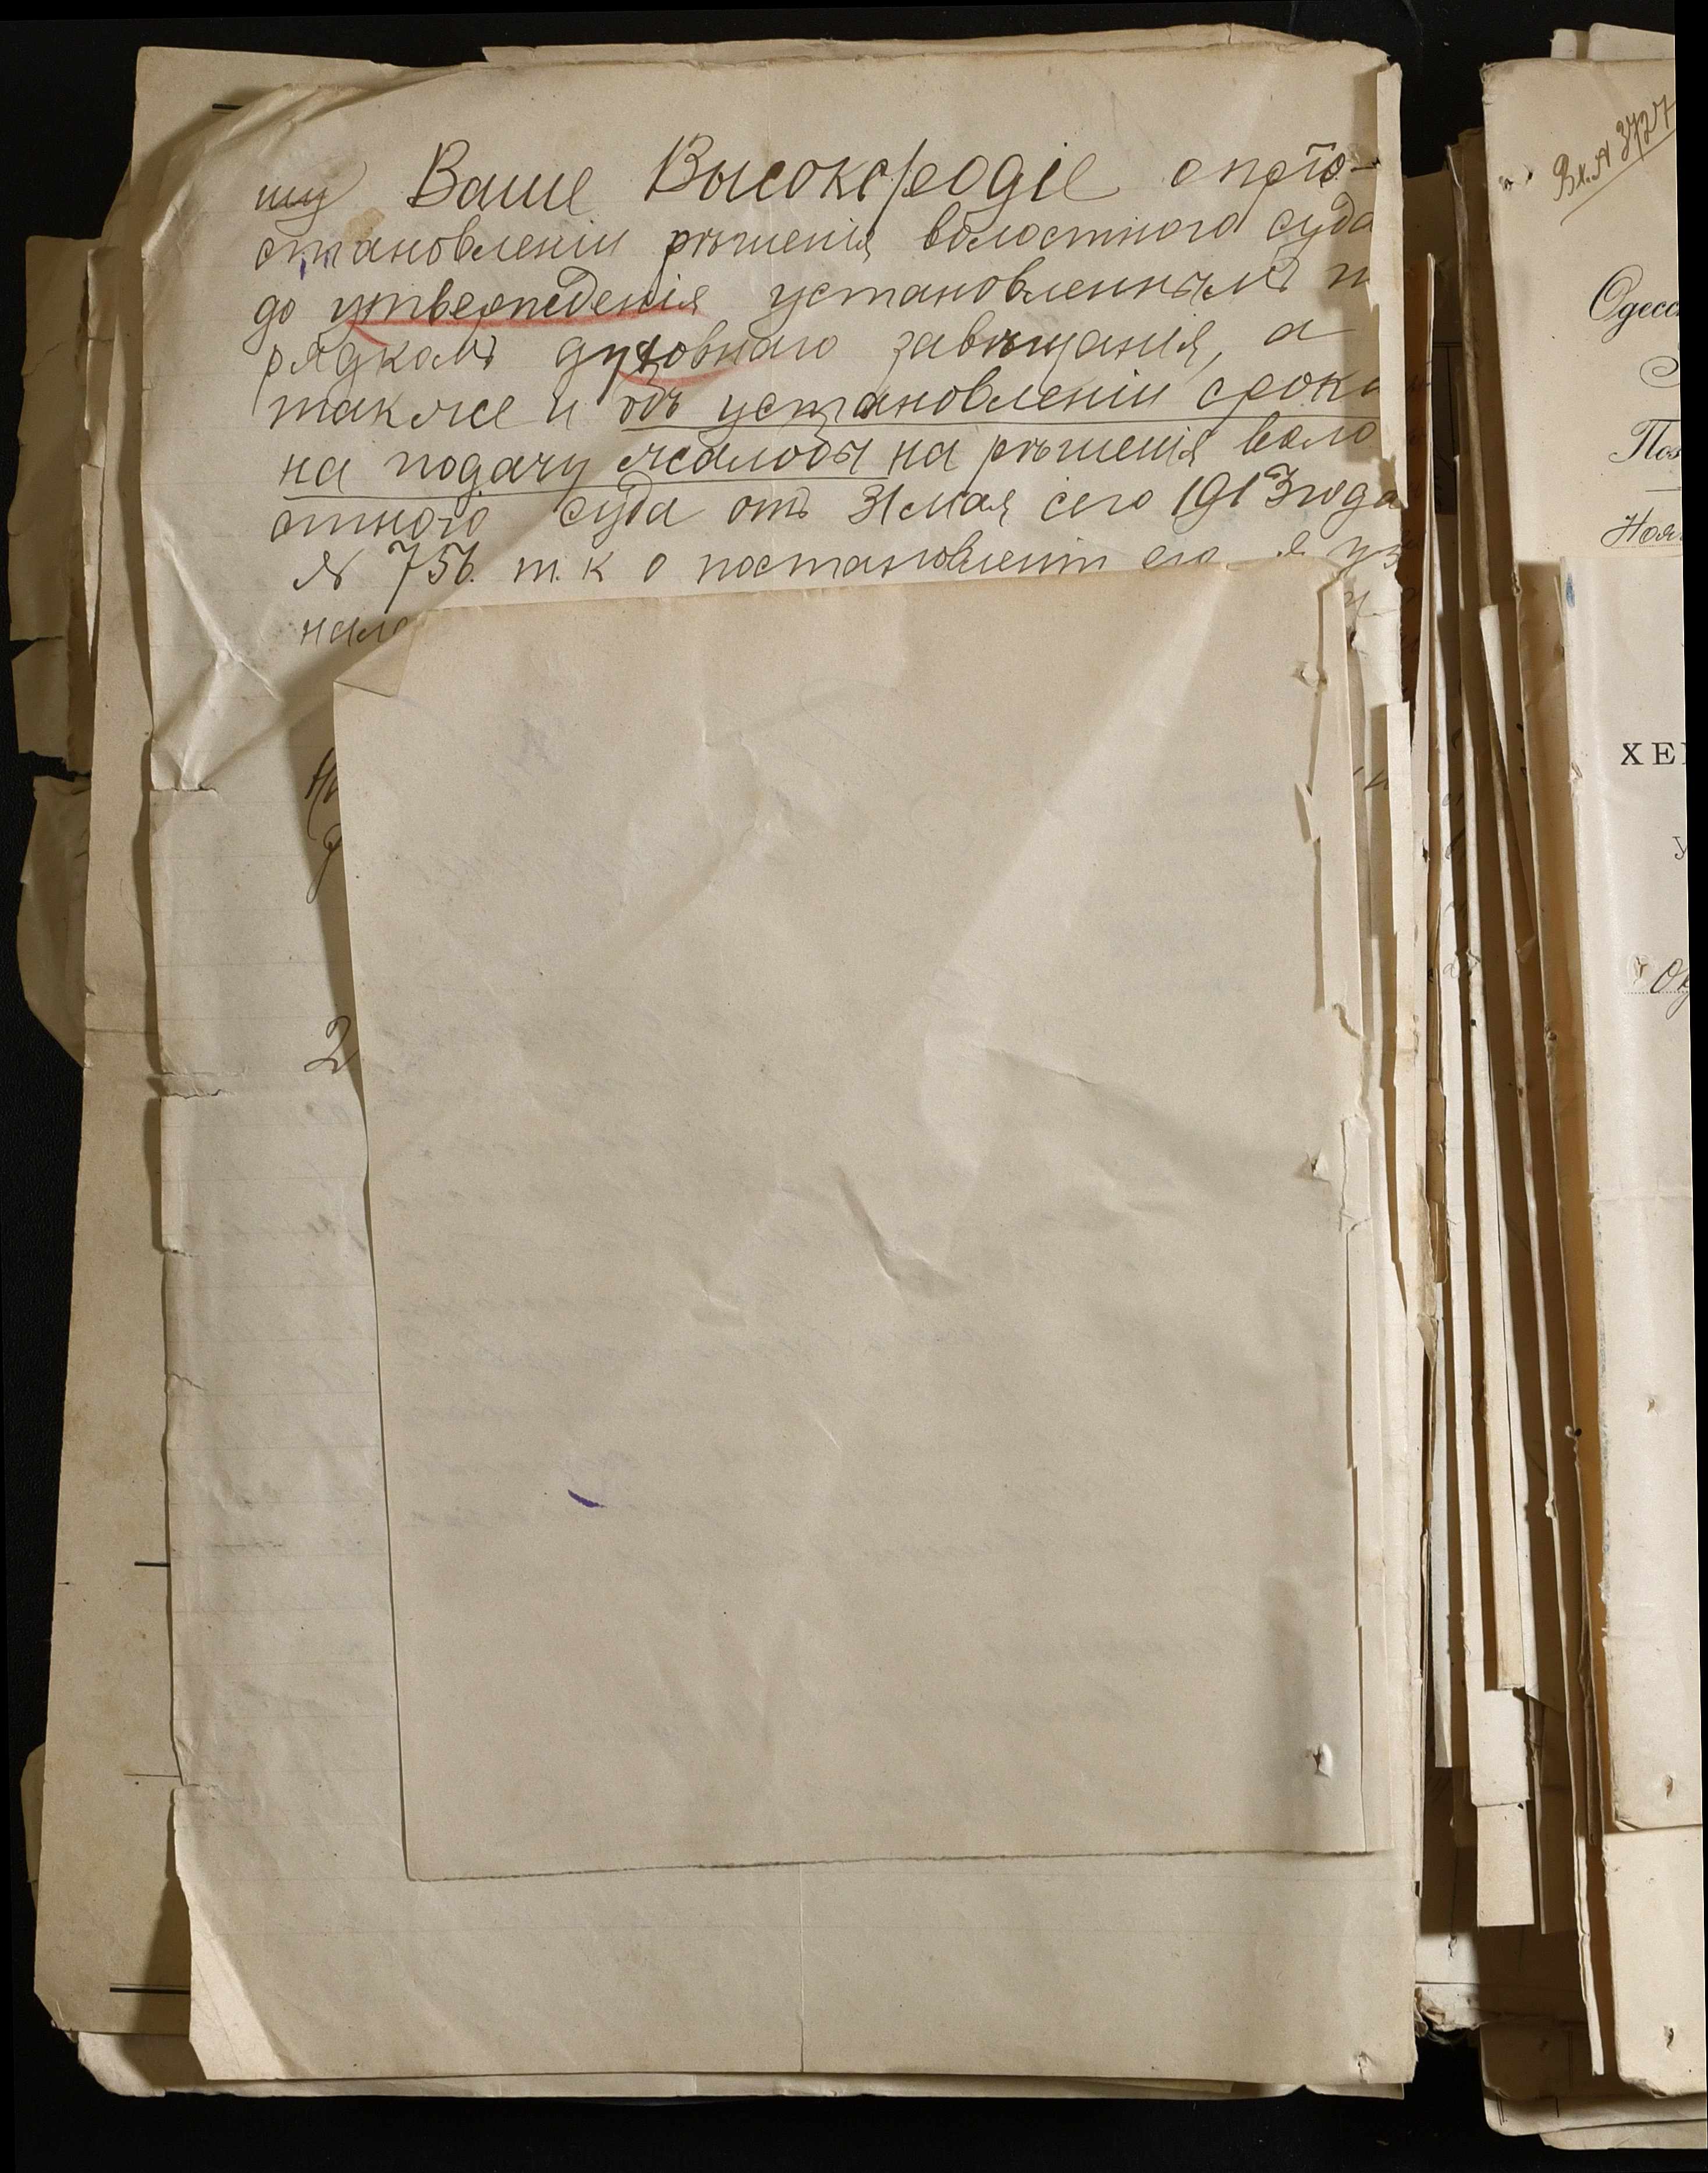 шу Ваше Высокородіе о пріо-
становленіи рѣшенія волостного суда
до утвержденія установленнымъ п
рядкомъ духовнаго завѣщанія, а
также и объ установленіи срока
на подачу жалобы на рѣшенія воло
стного суда отъ 31 мая сего 1913 года
№ 756. т. к о постановленіи его я уз
нала
2
Вх. № 3727
Одесс
Поз
Ноя
ХЕ
У
Ок